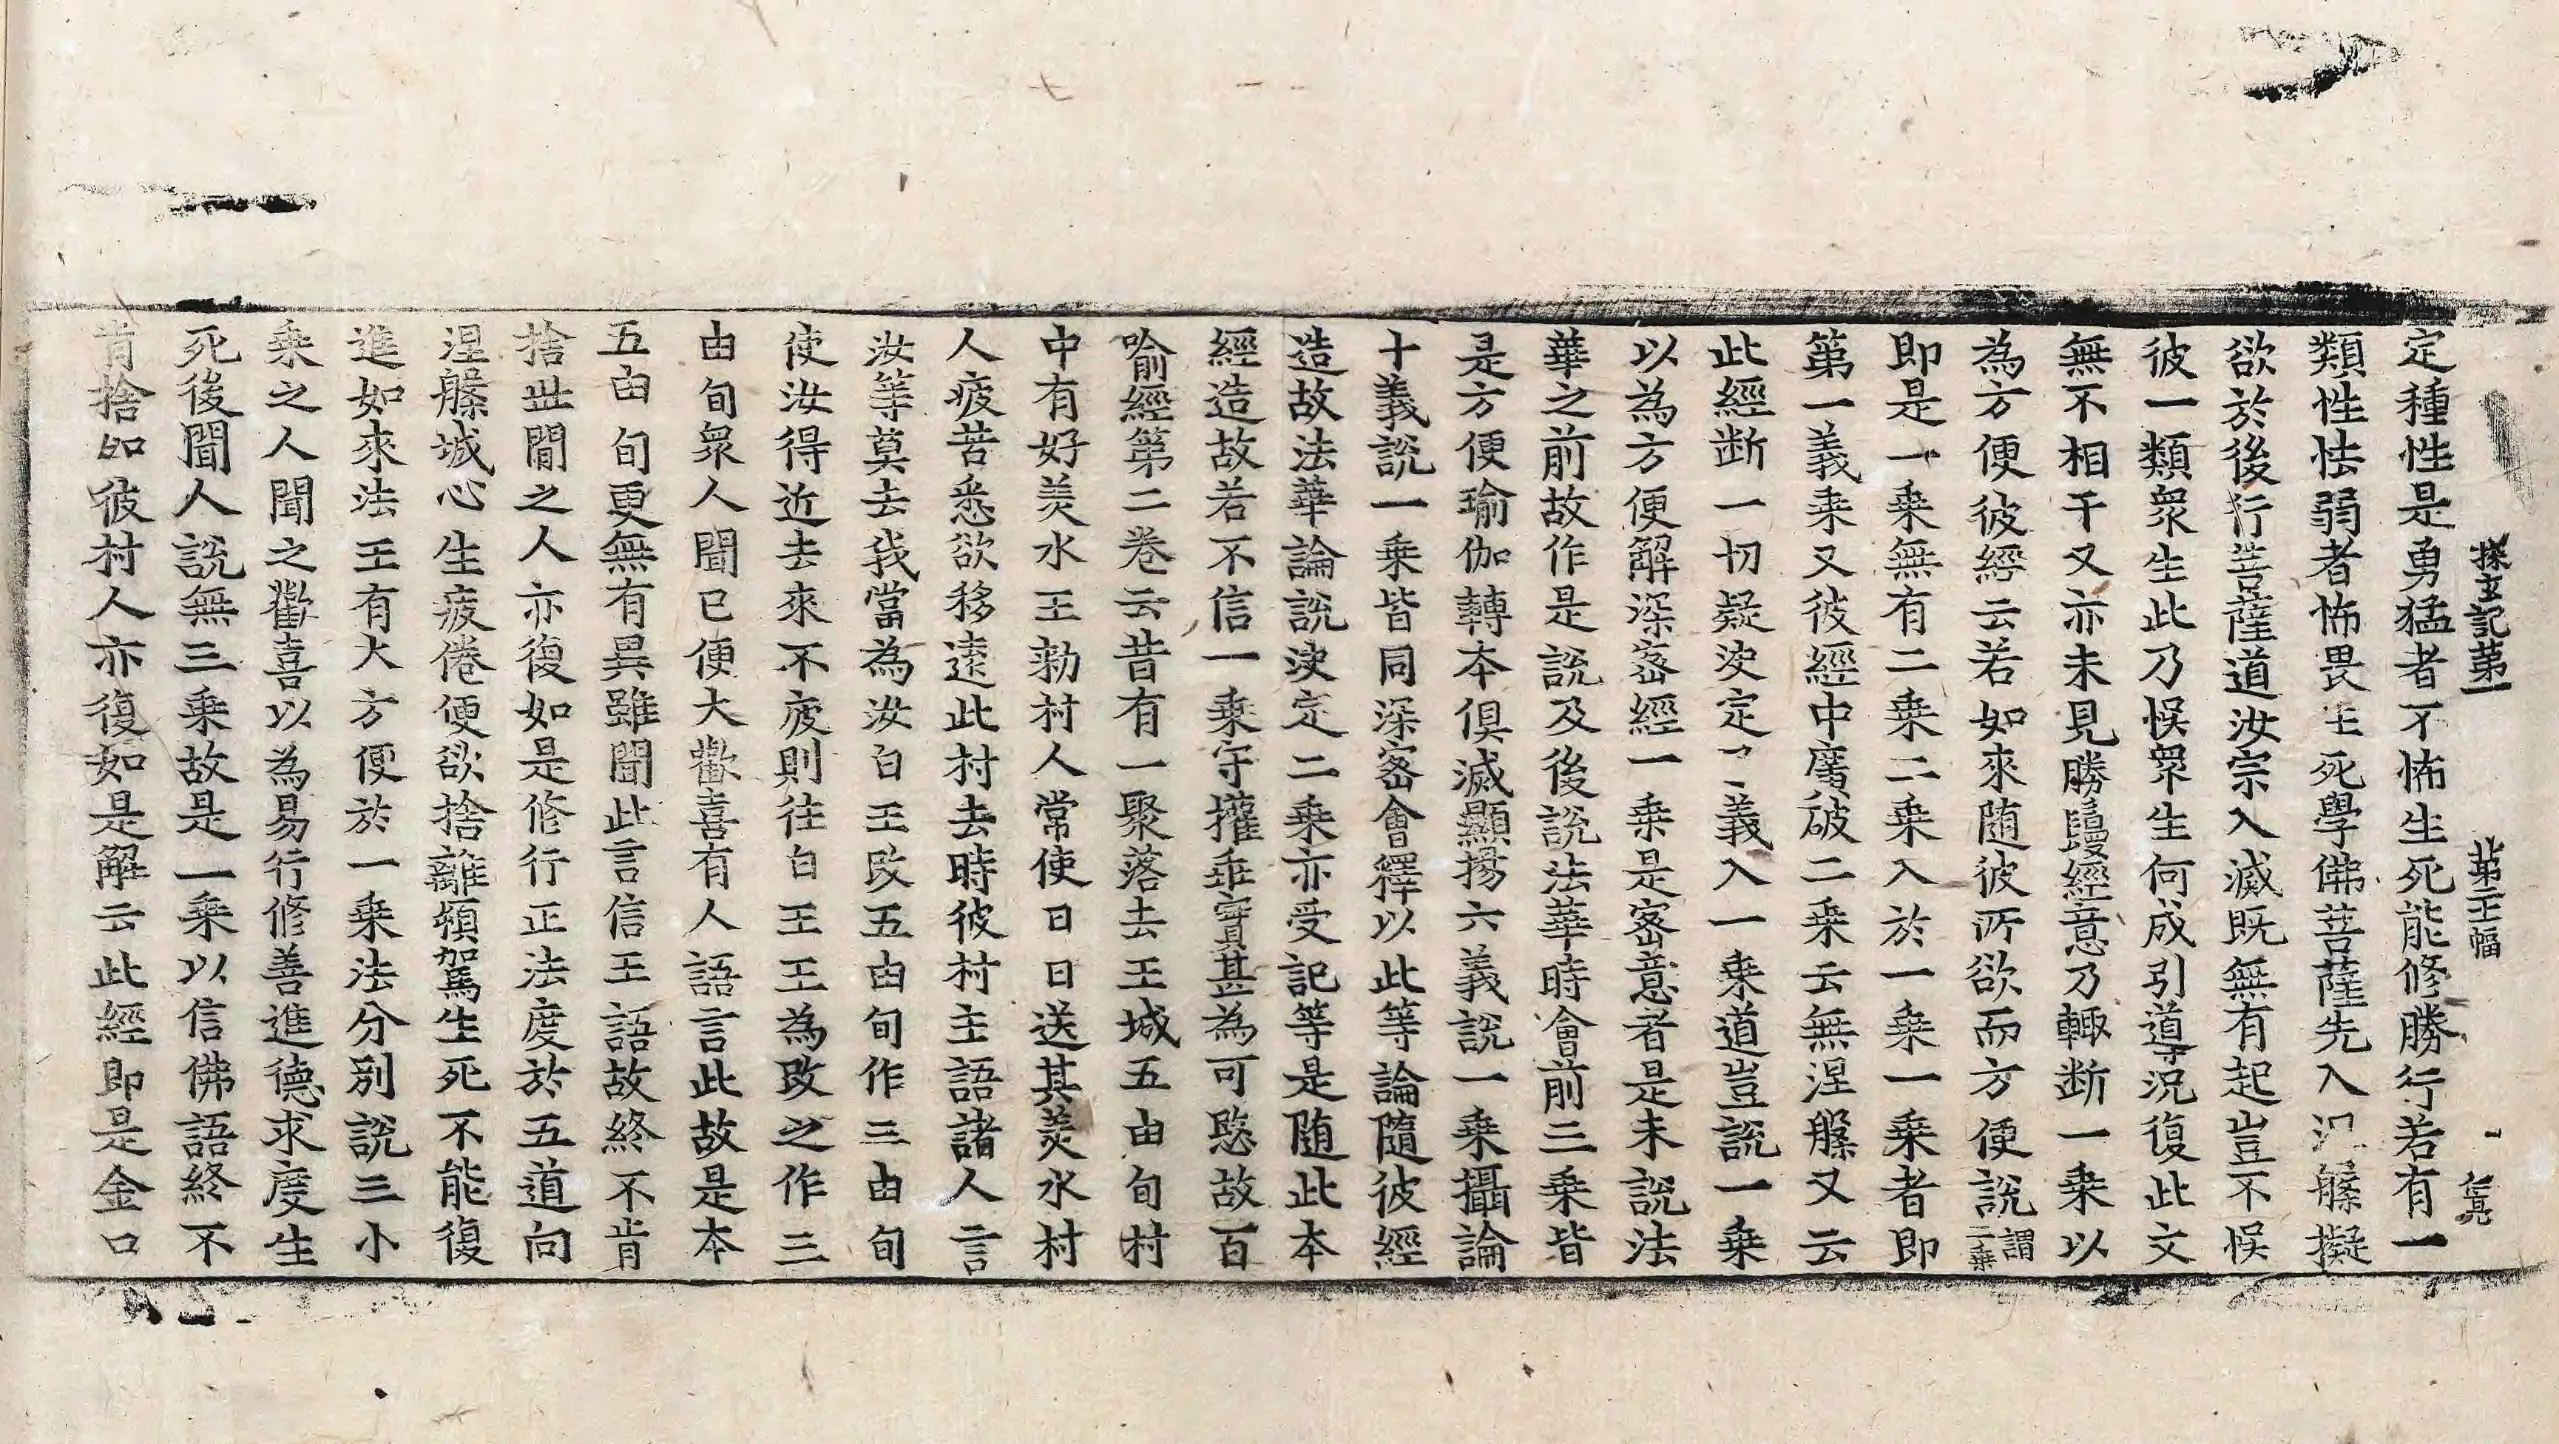 探玄記第一　第三十幅　仁亮
定種性是勇猛者不怖生死能修勝行若有一
類性怯弱者怖畏生死學佛菩薩先入涅槃擬
欲於後行菩薩道汝宗入滅既無有起豈不悞
彼一類衆生此乃悞衆生何成引導況復此文
無不相干又亦未見勝鬘經意乃輙断一乗以
為方便彼經云若如來随彼所欲而方便說謂二乗
即是一乗無有二乗二乗入於一乗一乗者即
第一義乗又彼經中廣破二乗云無涅槃又云
此經断一切疑决定了義入一乗道豈說一乗
以為方便解深宻經一乗是宻意者是未說法
華之前故作是說及後說法華時會前三乗皆
是方便瑜伽轉本俱滅顯揚六義說一乗攝論
十義說一乗皆同深宻會釋以此等論隨彼經
造故法華論說决定二乗亦受記等是随此本
經造故若不信一乗守權乖實甚為可愍故百
喻經第二卷云昔有一聚落去王城五由旬村
中有好美水王勑村人常使日日送其美水村
人疲苦悉欲移遠此村去時彼村主語諸人言
汝等莫去我當為汝白王改五由旬作三由旬
使汝得近去來不疲則往白王王為改之作三
由旬衆人聞已便大歡喜有人語言此故是本
五由旬更無有異雖聞此言信王語故終不肯
捨世間之人亦復如是修行正法度於五道向
涅槃城心生疲倦便欲捨離頓駕生死不能復
進如來法王有大方便於一乗法分別說三小
乗之人聞之歡喜以為易行修善進德求度生
死後聞人說無三乗故是一乗以信佛語終不
肯捨如彼村人亦復如是解云此經即是金口